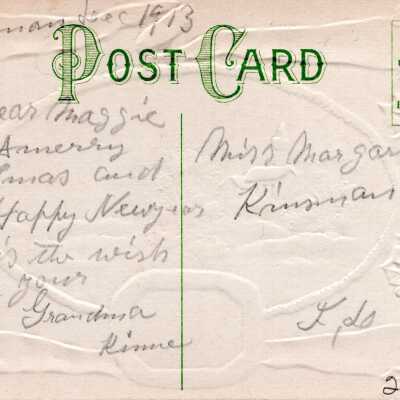 1913
POST CARD
ear Maggie
A merry
mas and
Happy Newyear
is the wish
your
Grandma
Kinne
Miss Margar
Kinsman
2